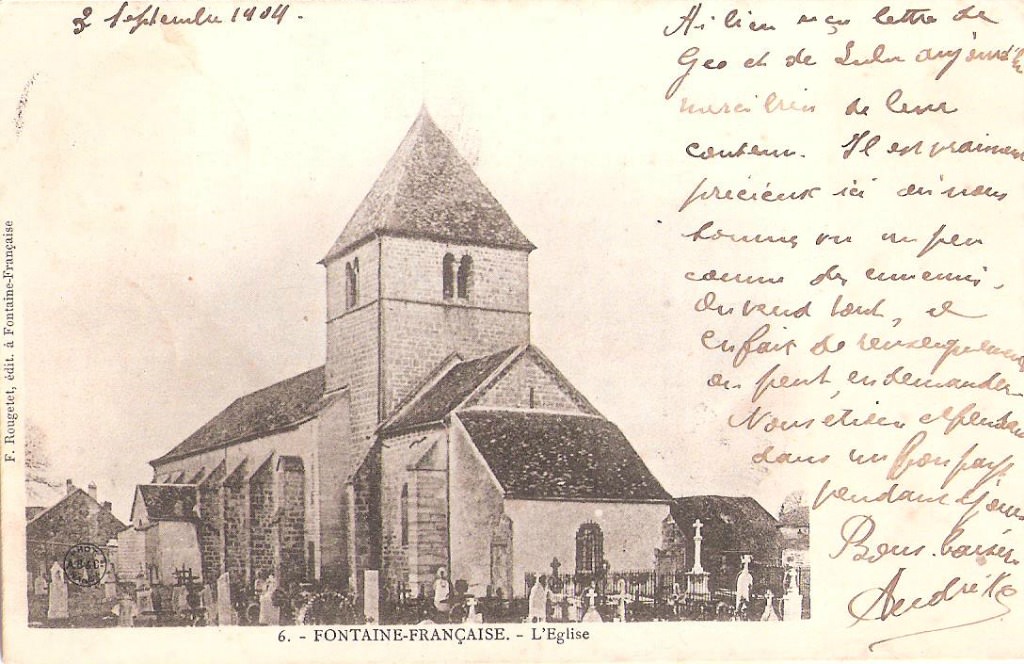 2 Septembre 1904.
Ai bien reçu lettre de
Geo et de Lulu aujourd'hui
merci bien de leur
Il est vraiment
précieux ici où nous
sommes vu un peu
comme des ennemis.
On vend tout, et
en fait de renseignements
on peut en demander.
Nous étions cependant
dans un bon pays
pendant jours
Bons baisers
André
F. Rougetet, édit. à Fontaine-Française
6. - FONTAINE-FRANÇAISE. - L'Eglise